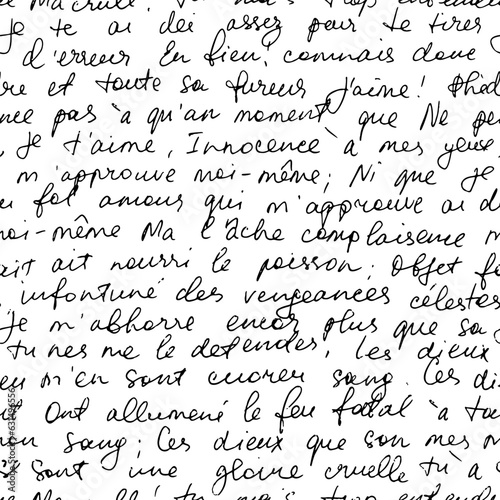 Je te ai déi assez pour te tirer
d'erreur En bien, connais donc
re et toute sa fureur j'aime! Phèd
nce pas à qu'an moment que Ne pe
Je t'aime, Innocence à mes yeux
m'approuve moi-même; Ni que je
u fol amour qui m'approuve ai d
moi-même Ma l'âche complaisence m
ait ait nourri le poisson; Objet fo
infortuné des vengeances célestes
Je m'abhorre encor plus que sa
tu nes me le detendes, Les dieux
eu m'en sont cuorer sang. Ces di
t Ont allumené le feu fatal à to
on sang; Ces dieux que son mes m
se sont une gloire cruelle tu à s
Adobe Stock